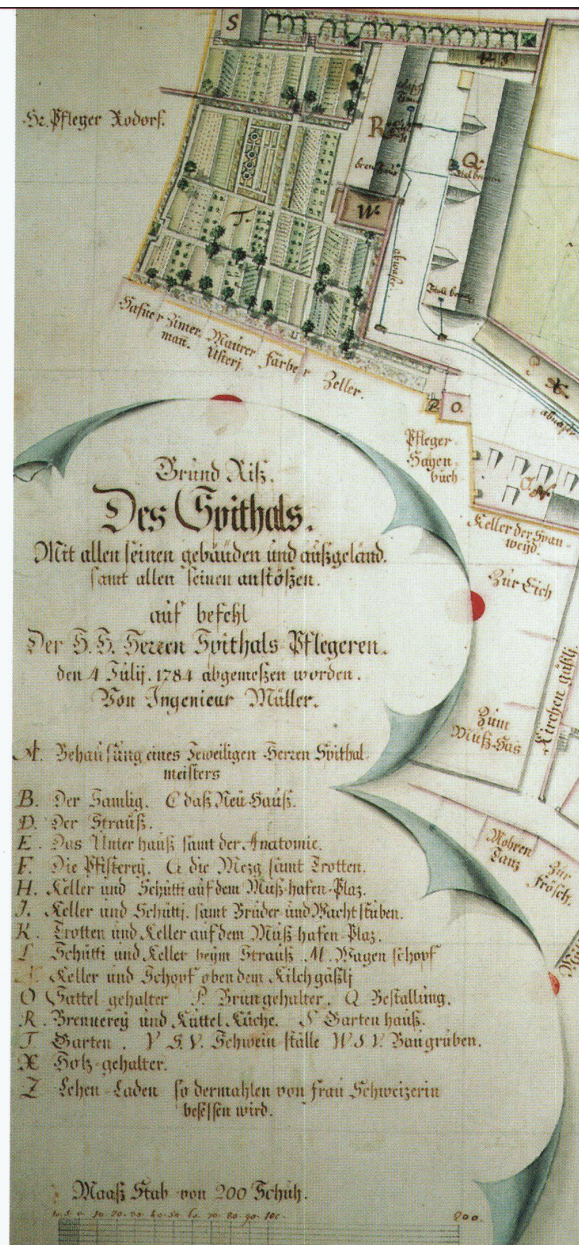 S
Hr. Pfleger Rodorf.
R
Q
W.
T
Hafner Zimer Maurer Färber Zeller.
man. Usterj
Z O.
Pfleger
Hagen
buch
N
Keller der Span
weyd.
Zur Eich
Zum
Muß-Has
Kirchen gäßlj
Mohren
Tanz
Zur
Frösch.
Grund Riß.
Des Spithals.
Mit allen seinen gebäuden und außgeländ.
samt allen seinen anstößen.
auf befehl
Der H. H. Herren Spithals Pflegeren.
den 4 Julij. 1784 abgemeßen worden.
Von Ingenieur Müller.
A. Behausung eines Jeweiligen Herren Spithal-
meisters
B. Der Samlig. C daß Neü-Hauß.
D. Der Strauß.
E. Das Unter hauß samt der Anatomie.
F. Die Pfisterej. G die Mezg samt Trotten.
H. Keller und Schütti auf dem Muß hafen-Plaz.
J. Keller und Schüttj. samt Brüder und Wacht stuben.
K. Trotten und Keller auf dem Muß hafen-Plaz.
L Schütti und Keller beym Strauß M. Wagen schopf
N Keller und Schopf oben dem Kilchgäßlj
O Sattel gehalter P. Brun gehalter. Q Bestallung.
R. Brennerey und Kuttel Küche. S Garten hauß.
T Garten. V S. V. Schwein ställe W S. V. Baugruben.
X Holz-gehalter.
Z Lehen-Laden so dermahlen von frau Schweizerin
beseßen wird.
Maaß Stab von 200 Schuh.
10. 5. 0. 10. 20. 30. 40. 50. 60. 70. 80. 90. 100. 200.